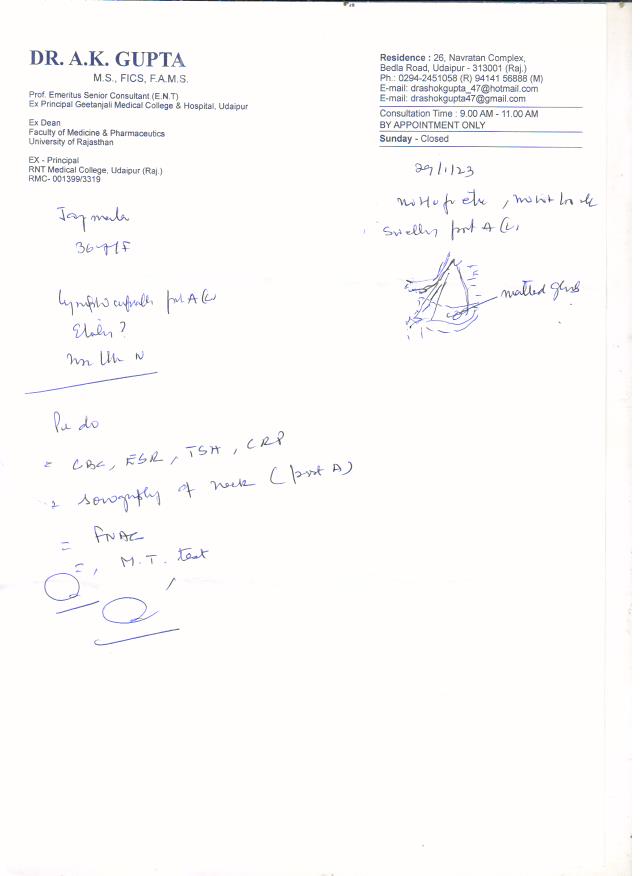 DR. A.K. GUPTA
M.S., FICS, F.A.M.S.
Prof. Emeritus Senior Consultant (E.N.T)
Ex Principal Geetanjali Medical College & Hospital, Udaipur
Ex Dean
Faculty of Medicine & Pharmaceutics
University of Rajasthan
EX - Principal
RNT Medical College, Udaipur (Raj.)
RMC- 001399/3319
Residence : 26, Navratan Complex,
Bedla Road, Udaipur - 313001 (Raj.)
Ph.: 0294-2451058 (R) 94141 56888 (M)
E-mail: drashokgupta_47@hotmail.com
E-mail: drashokgupta47@gmail.com
Consultation Time : 9.00 AM - 11.00 AM
BY APPOINTMENT ONLY
Sunday - Closed
29/1/23
post A (L)
matted
36 y/F
post A (L)
N
Pl do
= CBC, ESR, TSH, CRP
= sonography of neck (post A)
= FNAC
=, M.T. test